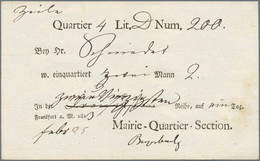 Zeile
Quartier 4 Lit. D Num. 200.
Bey Hr. Schneider
w. einquartiert zwei Mann 2.
In der Reihe, auf ein Tag.
Frankfurt a. M. den
Febr 25
Mairie-Quartier-Section.